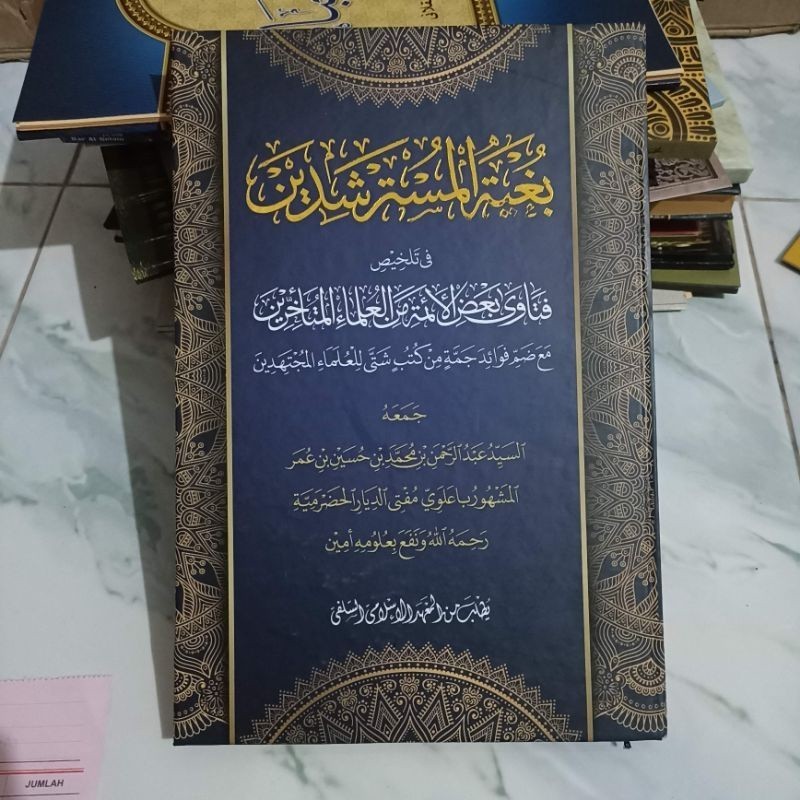 بُغْيَةُ الْمُسْتَرْشِدِيْنَ
فِي تَلْخِيْصِ
فَتَاوَى بَعْضِ الْأَئِمَّةِ مِنَ الْعُلَمَاءِ الْمُتَأَخِّرِيْنَ
مَعَ ضَمِّ فَوَائِدَ جَمَّةٍ مِنْ كُتُبٍ شَتَّى لِلْعُلَمَاءِ الْمُجْتَهِدِيْنَ
جَمَعَهُ
السَّيِّدُ عَبْدُ الرَّحْمَنِ بْنِ مُحَمَّدِ بْنِ حُسَيْنِ بْنِ عُمَرَ
الْمَشْهُوْرُ بَاعَلَوِيّ مُفْتِي الدِّيَارِ الْحَضْرَمِيَّةِ
رَحِمَهُ اللهُ وَنَفَعَ بِعُلُوْمِهِ أٰمِيْن
يُطْلَبُ مِنَ الْمَعْهَدِ الْإِسْلَامِيِّ السَّلَفِيِّ
JUMLAH